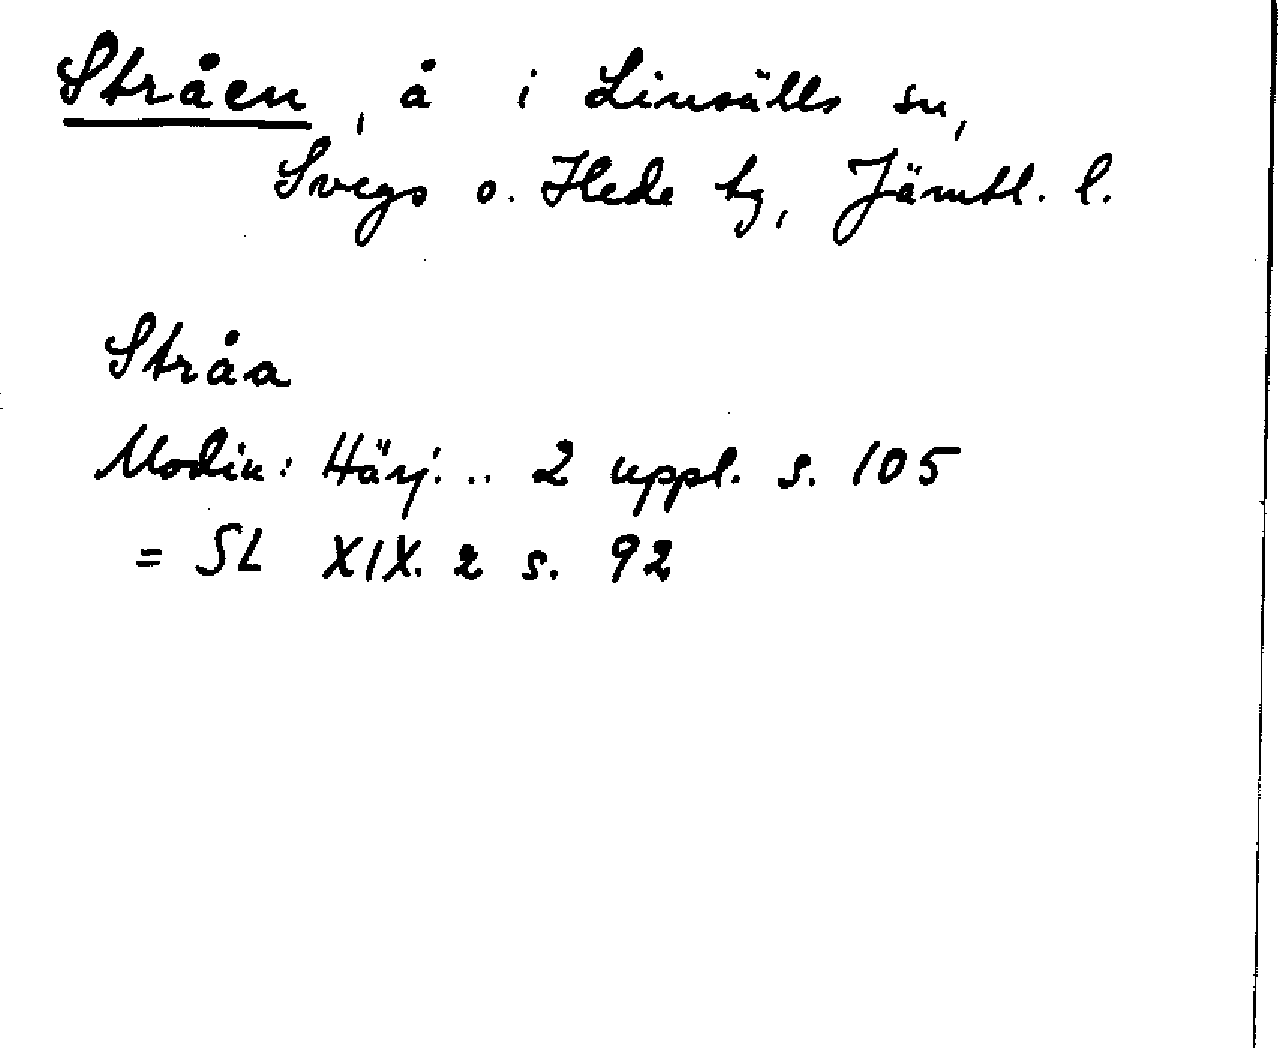 Stråen, å i Linsälls sn,
Svegs o. Hede tg, Jämtl. l.
Stråa
Modin: Härj. .. 2 uppl. s. 105
= SL XIX. 2 s. 92